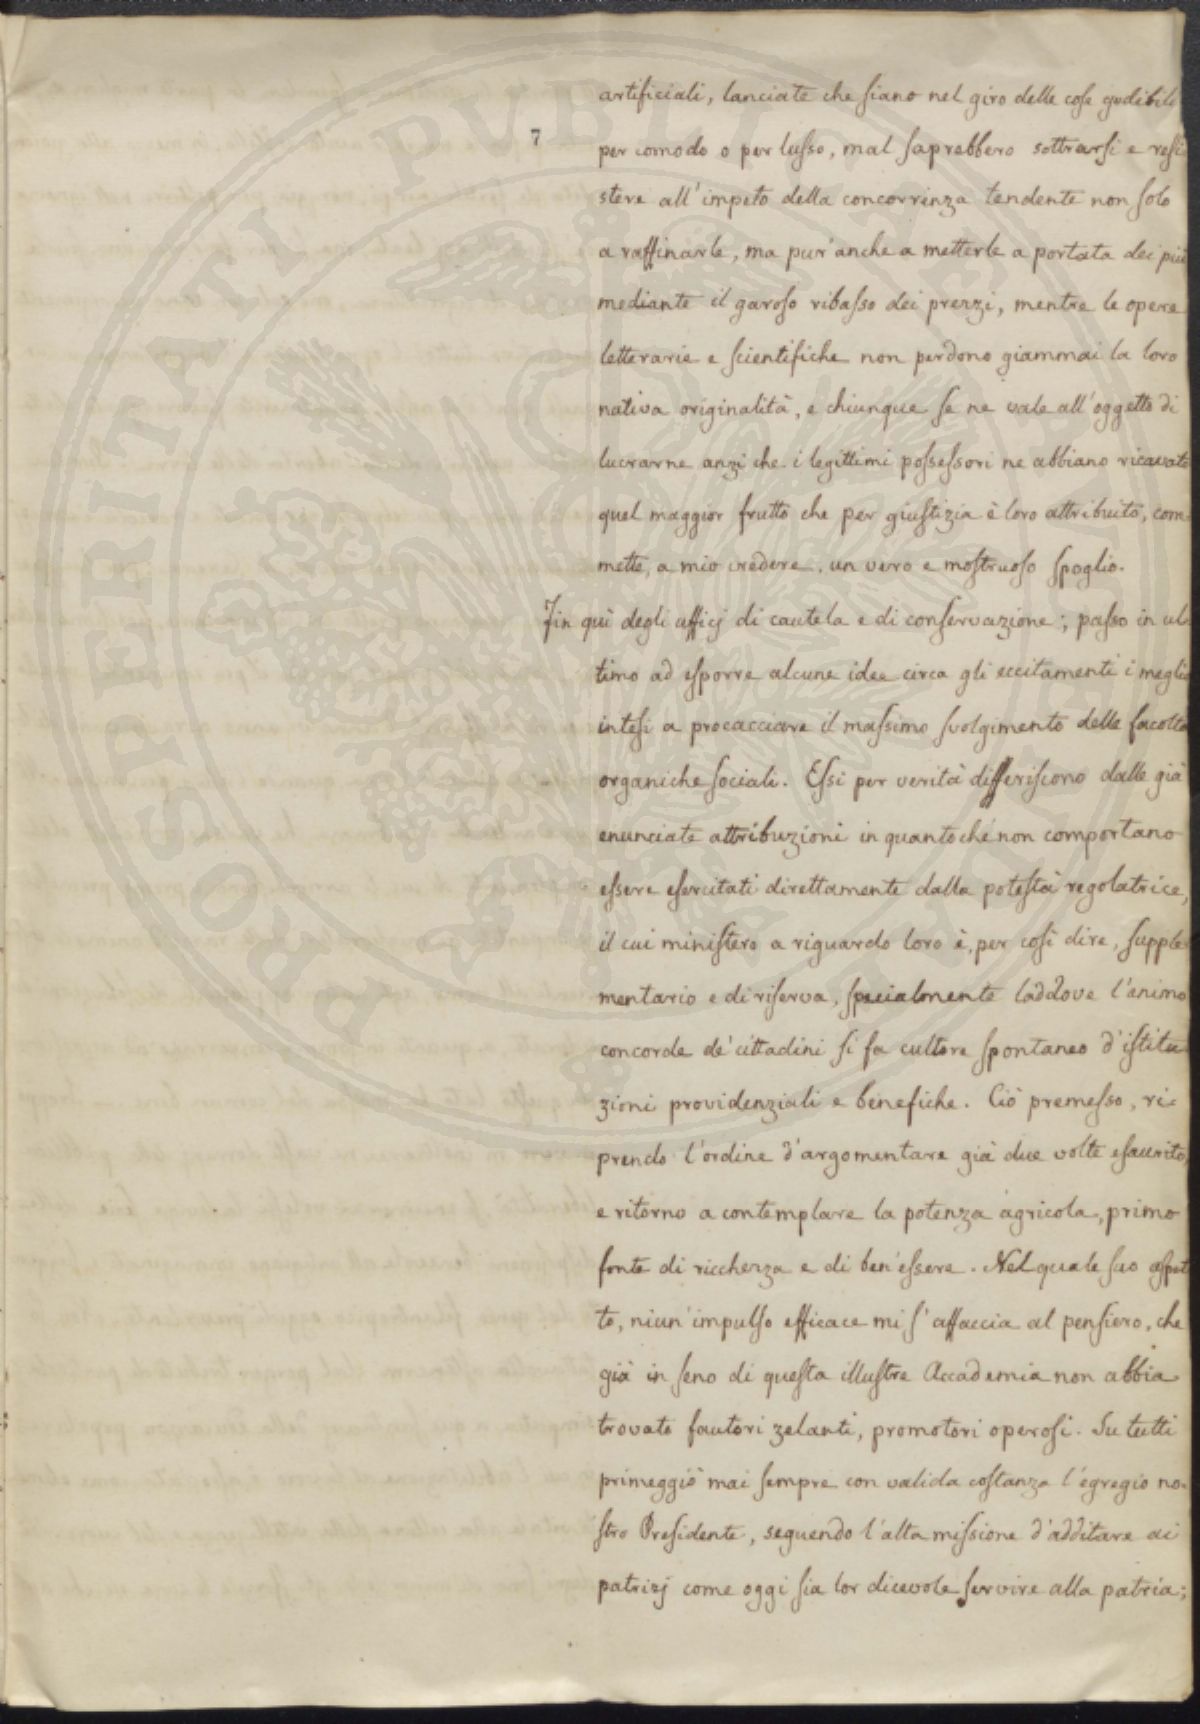 artificiali, lanciate che siano nel giro delle cose godibili
7
per comodo o per lusso, mal saprebbero sottrarsi e resi
stere all'impeto della concorrenza tendente non solo
a raffinarle, ma pur'anche a metterle a portata dei più
mediante il garoso ribasso dei prezzi, mentre le opere
letterarie e scientifiche non perdono giammai la loro
nativa originalità, e chiunque se ne vale all'oggetto di
lucrarne anzi che i legittimi possessori ne abbiano ricavato
quel maggior frutto che per giustizia è loro attribuito, com-
mette, a mio credere, un vero e mostruoso spoglio.
Fin quì degli ufficj di cautela e di conservazione; passo in ul-
timo ad esporre alcune idee circa gli eccitamenti i meglio
intesi a procacciare il massimo svolgimento delle facoltà
organiche sociali. Essi per verità differiscono dalle già
enunciate attribuzioni in quantoché non comportano
essere esercitati direttamente dalla potestà regolatrice,
il cui ministero a riguardo loro è, per così dire, supple-
mentario e di riserva, specialmente laddove l'animo
concorde de' cittadini si fa cultore spontaneo d'istitu-
zioni providenziali e benefiche. Ciò premesso, ri-
prendo l'ordine d'argomentare già due volte esaurito,
e ritorno a contemplare la potenza agricola, primo
fonte di ricchezza e di ben'essere. Nel quale suo aspet
to, niun'impulso efficace mi s'affaccia al pensiero, che
già in seno di questa illustre Accademia non abbia
trovato fautori zelanti, promotori operosi. Su tutti
primeggiò mai sempre con valida costanza l'egregio no-
stro Presidente, seguendo l'alta missione d'additare ai
patrizj come oggi sia lor dicevole servire alla patria;
PROSPERITATI PVBLICAE